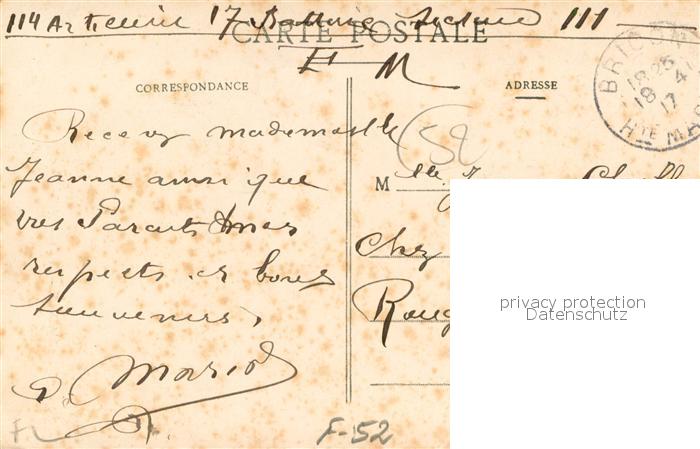 114 Artillerie 17 Batterie Secteur 111
CARTE POSTALE
E M
CORRESPONDANCE
ADRESSE
18 25
18 4
17
Hte MA
Recevez mademoiselle
Jeanne ainsi que
vos Parents mes
respects et bons
souvenirs,
(52
M lle J
Chez
Roug
privacy protection
Datenschutz
F-52